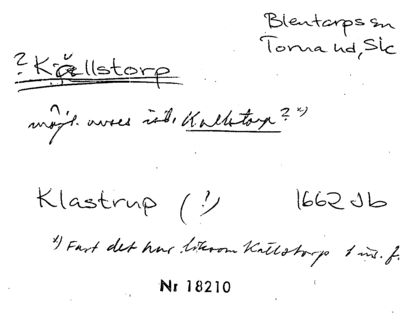 Blentarps sn
Torna hd, Sk
? Källstorp
möjl. avses ist. Kallstorp? x)
Klastrup (!) 1662 Jb
x) Fast det har liksom Källstorp 1 in. f.
Nr 18210